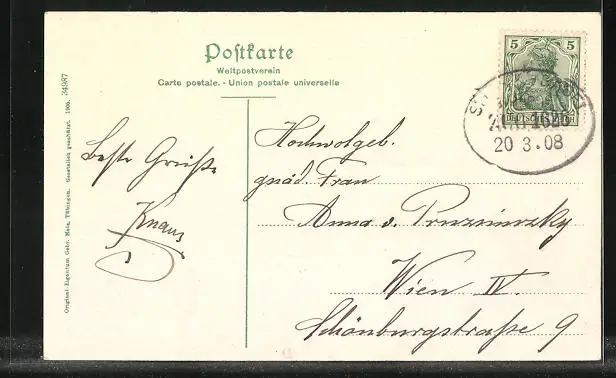 Postkarte
Weltpostverein
Carte postale. - Union postale universelle
34987
Original-Eigentum Gebr. Metz, Tübingen. Gesetzlich geschützt. 1908.
5 5
DEUTSCHES REICH
20 3.08
Beste Grüße
Knaus
Hochwolgeb.
gnäd. Frau
Anna v.
Wien IV.
Schönburgstraße 9